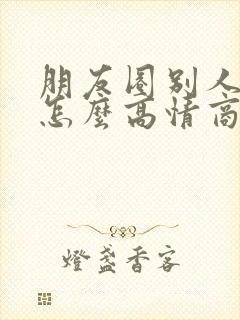 朋友圈别人
怎麼高情商
燈盞香客